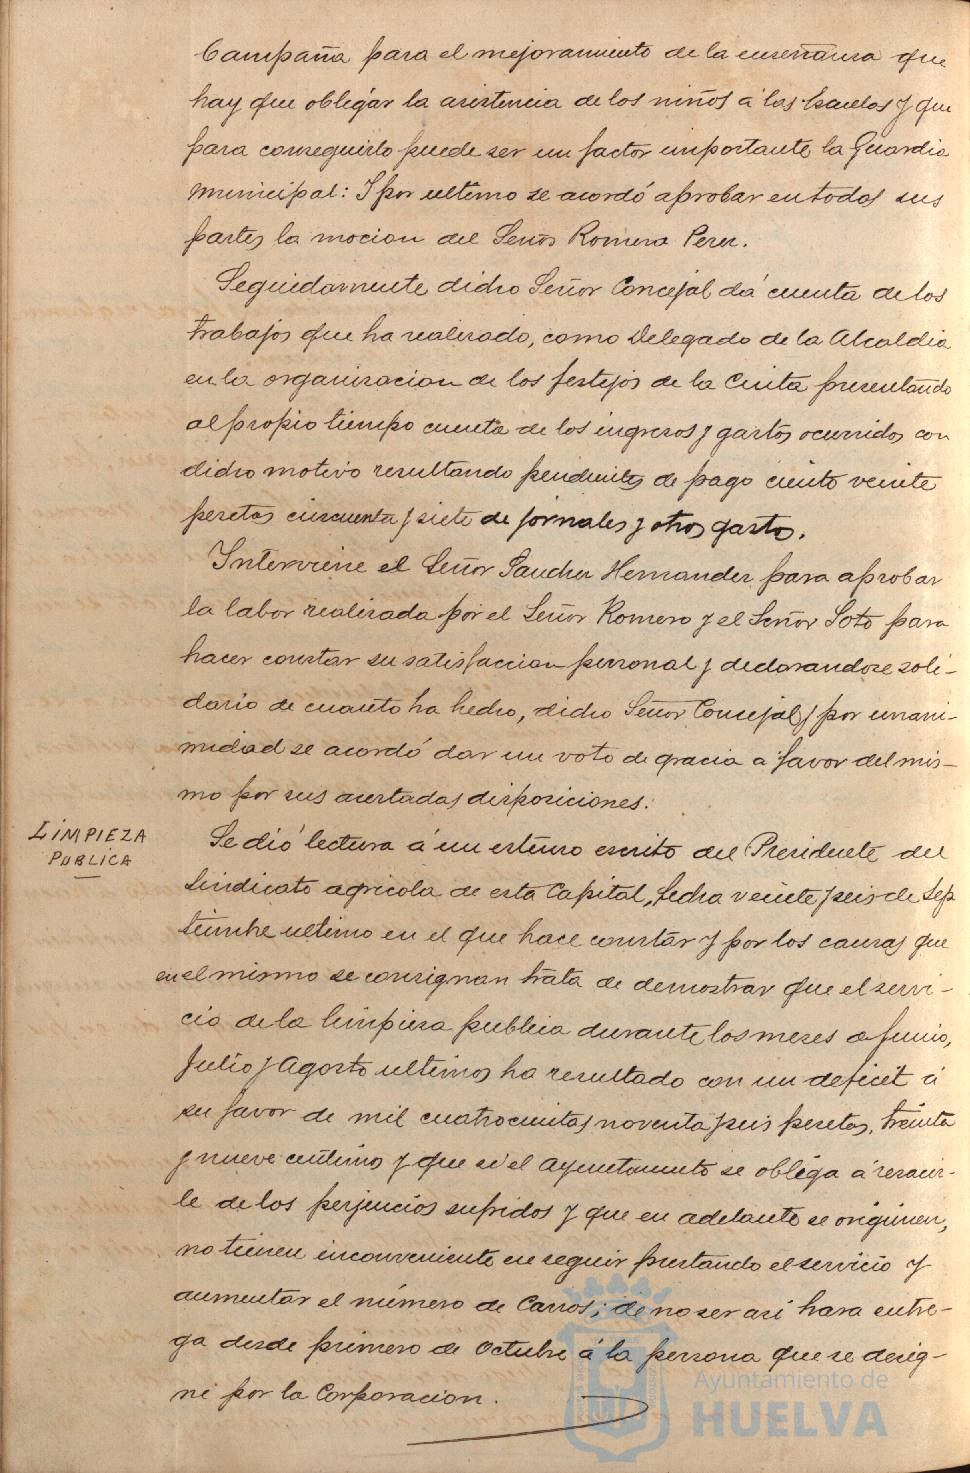 Campaña para el mejoramiento de la enseñanza que
hay que obligar la asistencia de los niños á las Escuelas y que
para conseguirlo puede ser un factor importante la Guardia
Municipal: Y por ultimo se acordó aprobar en todas sus
partes la mocion del Señor Romero Perez.
Seguidamente dicho Señor Concejal dá cuenta de los
trabajos que ha realizado, como Delegado de la Alcaldia
en la organizacion de los festejos de la Cinta presentando
al propio tiempo cuenta de los ingresos y gastos ocurridos con
dicho motivo resultando pendientes de pago ciento veinte
pesetas cincuenta y siete de jornales y otros gastos.
Interviene el Señor Sanchez Hernandez para aprobar
la labor realizada por el Señor Romero y el Señor Soto para
hacer constar su satisfaccion personal y declarandose soli-
dario de cuanto ha hecho, dicho Señor Concejal y por unani-
midad se acordó dar un voto de gracia a favor del mis-
mo por sus acertadas disposiciones.
LIMPIEZA
PUBLICA
Se dió lectura á un extenso escrito del Presidente del
Sindicato agricola de esta Capital, fecha veinte y seis de Sep
tiembre ultimo en el que hace constar y por las causas que
en el mismo se consignan trata de demostrar que el servi-
cio de la limpieza publica durante los meses de Junio,
Julio y Agosto ultimos ha resultado con un deficit á
su favor de mil cuatrocientas noventa y seis pesetas, treinta
y nueve centimos y que si el Ayuntamiento se obliga á resacir-
le de los perjuicios sufridos y que en adelante se originen,
no tienen inconveniente en seguir prestando el servicio y
aumentar el número de Carros; de no ser asi hara entre-
ga desde primero de Octubre á la persona que se desig-
ne por la Corporacion.
Ayuntamiento de
HUELVA